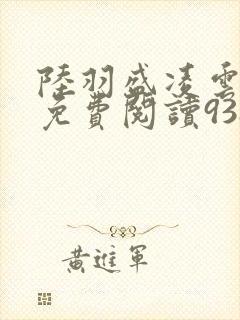 陸羽盛凌雲
免費閱讀93
黃進軍